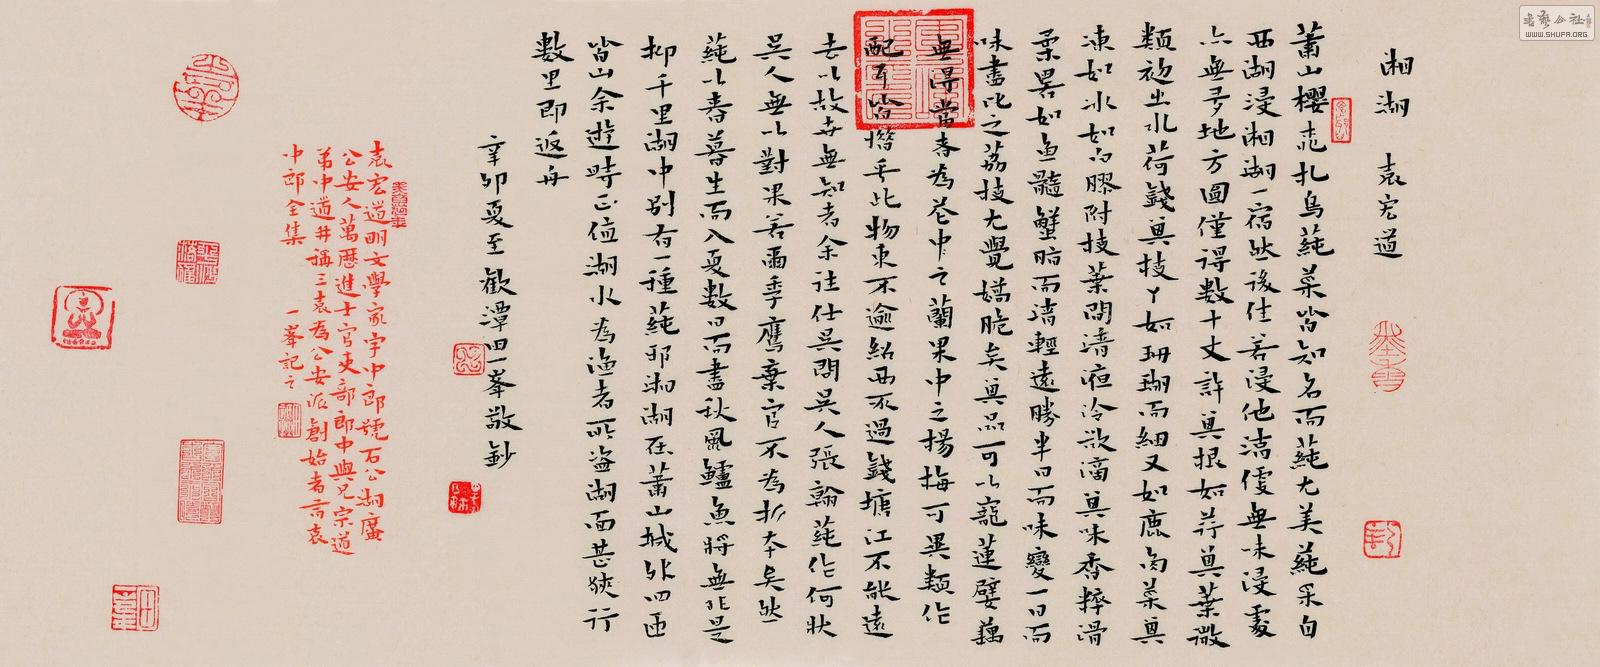 湘湖 袁宏道
蕭山櫻桃扎鳥蒓菜皆知名而蒓尤美蒓采自
西湖浸湘湖一宿然後佳若浸他湖便無味浸處
亦無多地方圓僅得數十丈許其根如荇其葉微
類初出水荷錢其枝丫如珊瑚而細又如鹿角菜其
凍如冰如白膠附枝葉間清液泠泠欲滴其味香粹滑
柔畧如魚髓蟹脂而清輕遠勝半日而味變一日而
味盡比之荔枝尤覺嬌脆矣其品可以寵蓮嬖藕
無得當者惟花中之蘭果中之楊梅可異類作
配耳惜乎此物東不逾紹西不過錢塘江不能遠
去以故世無知者余往仕吳問吳人張翰蒓作何狀
吳人無以對果若爾季鷹棄官不為折本矣然
蒓以春暮生而入夏數日而盡秋風鱸魚將無非是
抑千里湖中別有一種蒓邪湘湖在蕭山城外四匝
皆山余遊時正值湖水為漁者所盜湖面甚狹行
數里即返舟
辛卯夏至歡潭田一峯敬鈔
袁宏道明文學家字中郎號石公湖廣
公安人萬曆進士官吏部郎中與兄宗道
弟中道並稱三袁為公安派創始者言袁
中郎全集 一峯記之
書藝公社
WWW.SHUFA.ORG